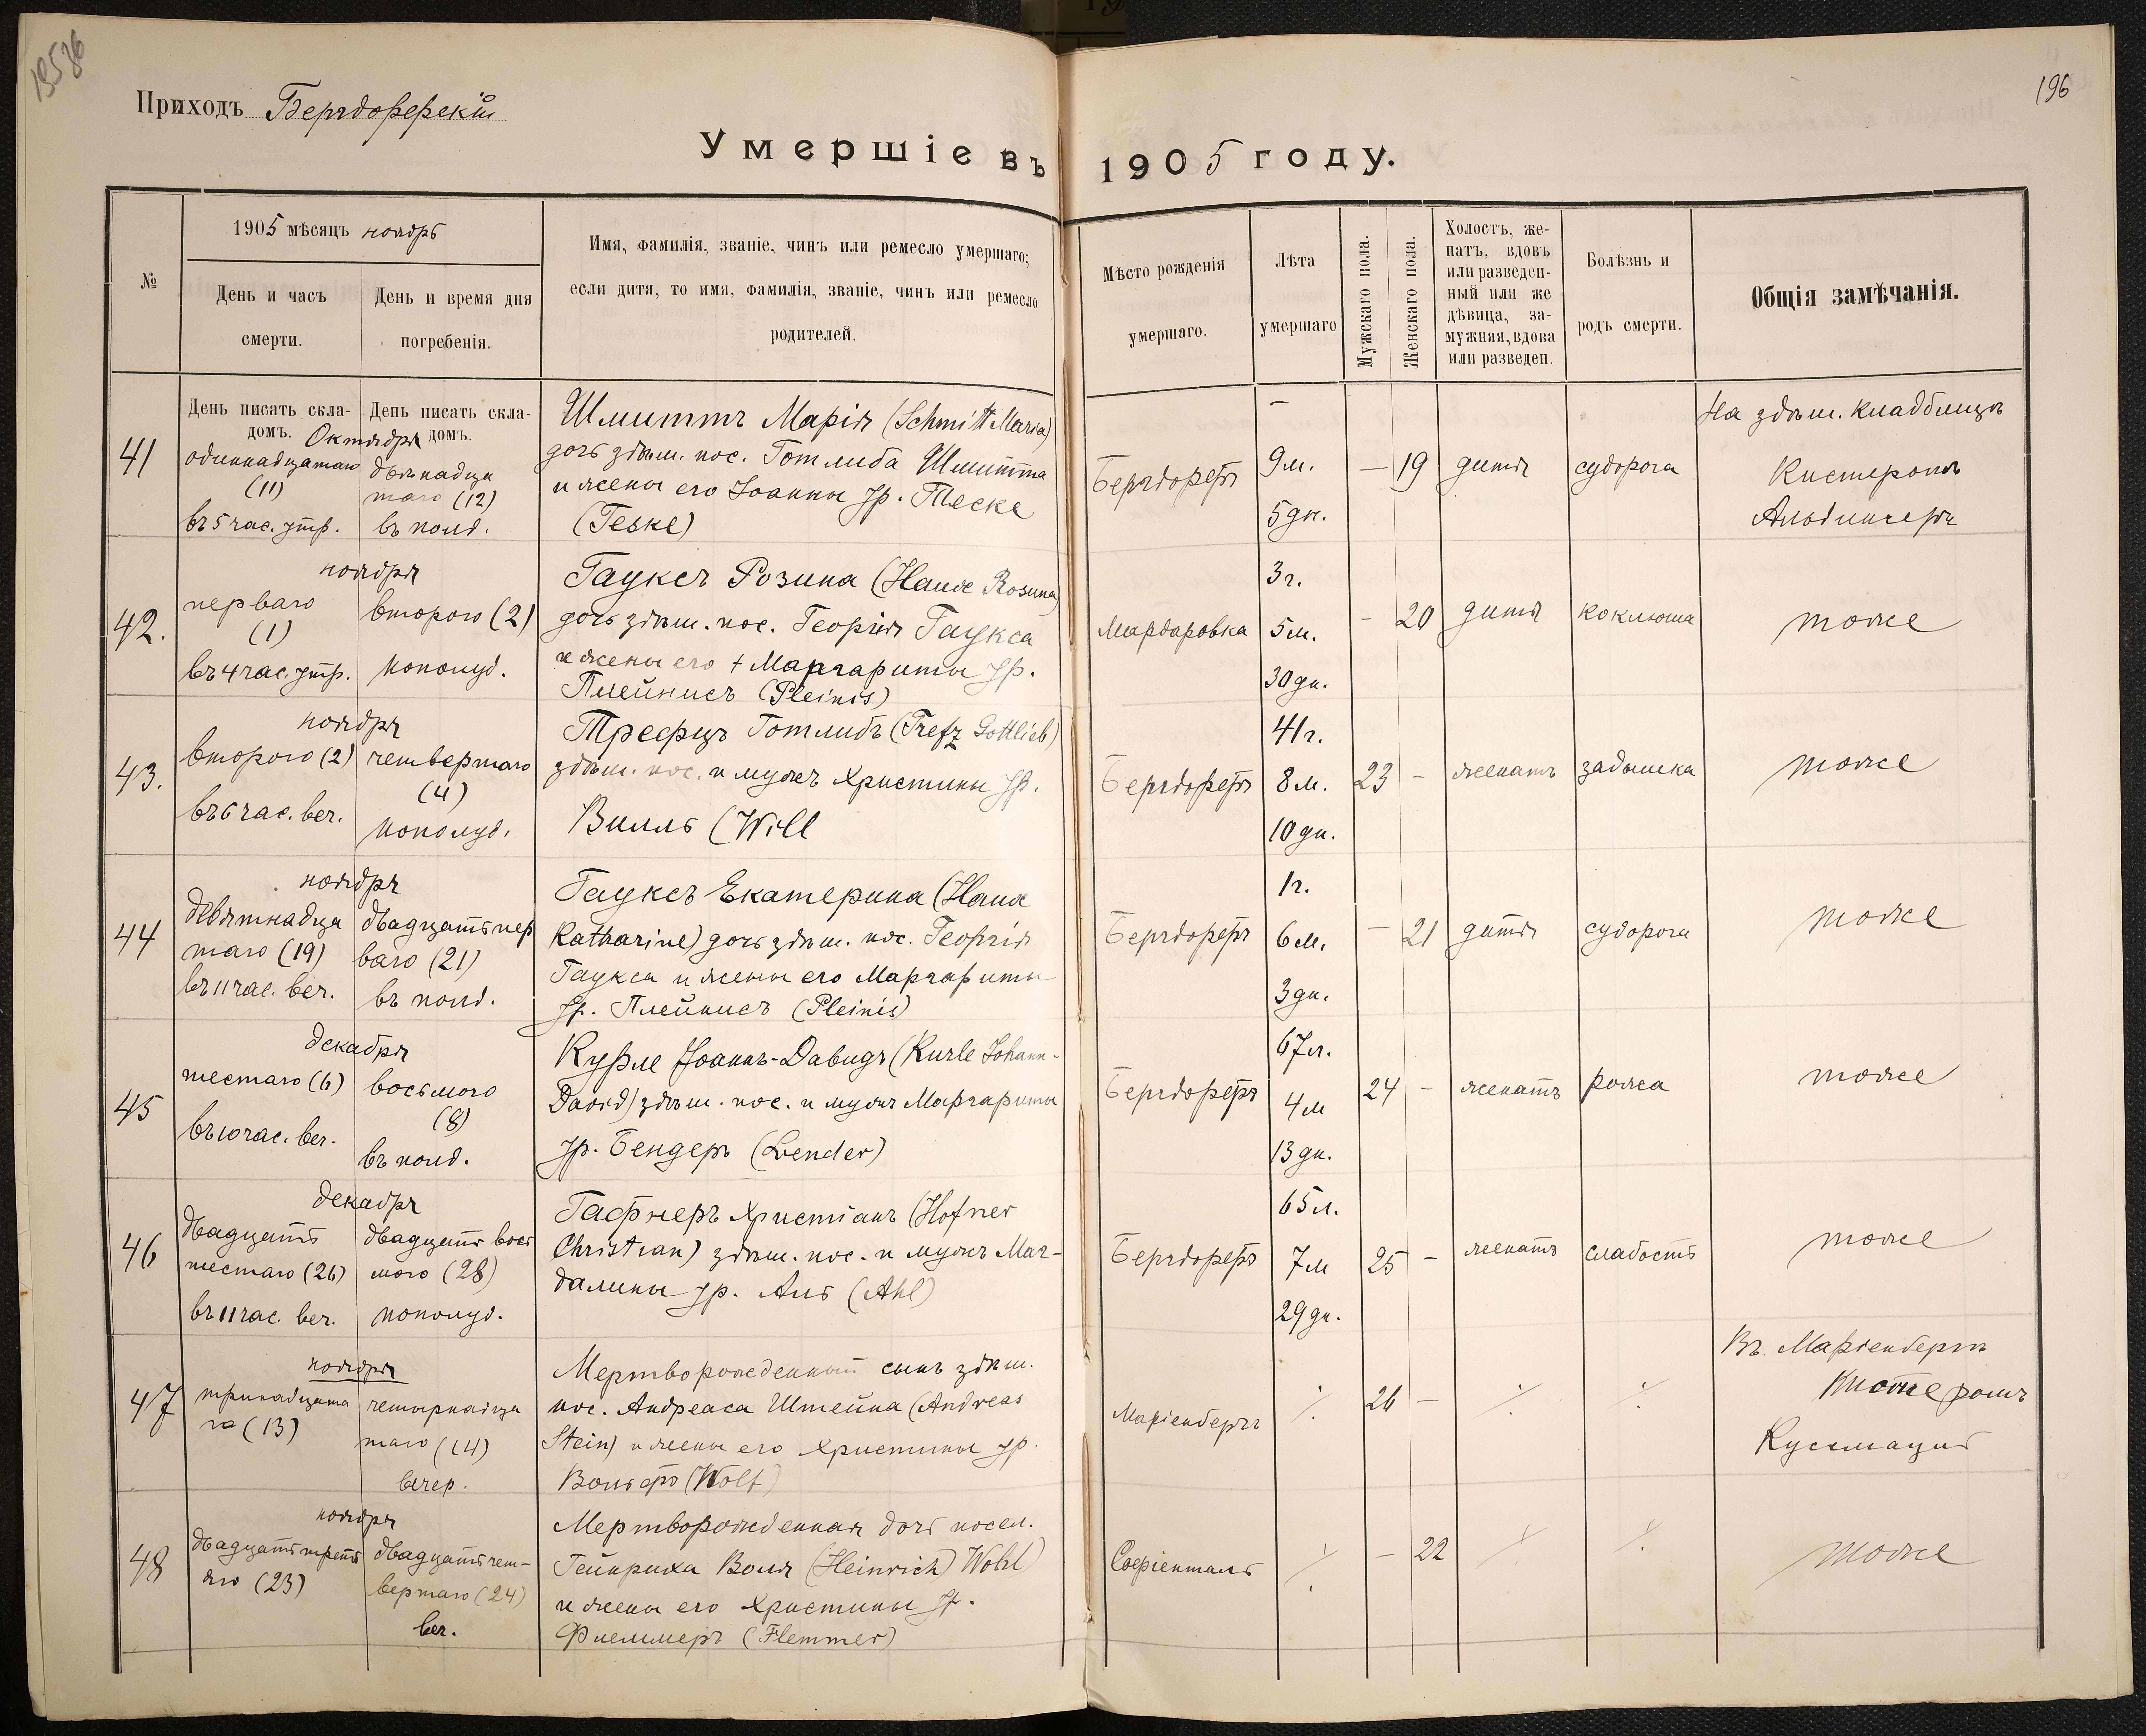 196
Приходъ Бергдорфскiй
Умершiе въ 1905 году.
№
1905 мѣсяцъ ноябрь
День и часъ смерти.
День и время дня погребенiя.
Имя, фамилiя, званiе, чинъ или ремесло умершаго;
если дитя, то имя, фамилiя, званiе, чинъ или ремесло
родителей.
Мѣсто рожденiя умершаго.
Лѣта умершаго
Мужскаго пола.
Женскаго пола.
Холостъ, же-
натъ, вдовъ
или разведен-
ный или же
дѣвица, за-
мужняя, вдова
или разведен.
Болѣзнь и родъ смерти.
Общiя замѣчанiя.
День писать скла-
домъ.
День писать скла-
домъ.
Октября
41
одиннадцатаго
(11)
въ 5 час. утр.
двѣнадца
таго (12)
въ полд.
Шмиттъ Марiя (Schmitt Maria)
дочь здѣш. пос. Готлиба Шмитта
и жены его Іоанны ур. Теске
(Teske)
Бергдорфъ
9 м.
5 дн.
— 19
дитя
судорога
На здѣш. кладбищѣ
Кистеромъ
Альдингеръ
ноября
42.
перваго
(1)
въ 4 час. утр.
второго (2)
пополуд.
Гауксъ Розина (Hauxe Rosina)
дочь здѣш. пос. Георгiя Гаукса
и жены его + Маргариты ур.
Плейнисъ (Pleinis)
Мардаровка
3 г.
5 м.
30 дн.
- 20
дитя
коклюша
тоже
ноября
43.
второго (2)
въ 6 час. веч.
четвертаго
(4)
пополуд.
Трефцъ Готлибъ (Trefz Gottlieb)
здѣш. пос. и мужъ Христины ур.
Вилль (Will
Бергдорфъ
41 г.
8 м.
10 дн.
23 -
женатъ
задышка
тоже
ноября
44
девятнадца
таго (19)
въ 11 час. веч.
двадцать пер
ваго (21)
въ полд.
Гауксъ Екатерина (Haux
Katharine) дочь здѣш. пос. Георгiя
Гаукса и жены его Маргариты
ур. Плейнисъ (Pleinis)
Бергдорфъ
1 г.
6 м.
3 дн.
- 21
дитя
судорога
тоже
декабря
45
шестаго (6)
въ 10 час. веч.
восьмого
(8)
въ полд.
Курле Іоаннъ-Давидъ (Kurle Johann-
David) здѣш. пос. и мужъ Маргариты
ур. Бендеръ (Bender)
Бергдорфъ
67 л.
4 м
13 дн.
24 -
женатъ
рожа
тоже
декабря
46
двадцать
шестаго (26)
въ 11 час. веч.
двадцать вось
мого (28)
пополуд.
Гафнеръ Христiанъ (Hofner
Christian) здѣш. пос. и мужъ Маг-
далины ур. Аль (Ahl)
Бергдорфъ
65 л.
7 м
29 дн.
25 -
женатъ
слабость
тоже
ноября
47
тринадцата
го (13)
четырнадца
таго (14)
вечер.
Мертворожденный сынъ здѣш.
пос. Андреаса Штейна (Andreas
Stein) и жены его Христины ур.
Вольфъ (Wolf)
Марiенбергъ
٪
26 -
٪
٪
Въ Марiенбергѣ
Кистеромъ
Куссмауль
ноября
48
двадцать треть
яго (23)
двадцать чет-
вертаго (24)
веч.
Мертворожденная дочь посел.
Гейнриха Воля (Heinrich) Wohl
и жены его Христины ур.
Флеммеръ (Flemmer)
Софiенталь
٪
- 22
٪
٪
тоже